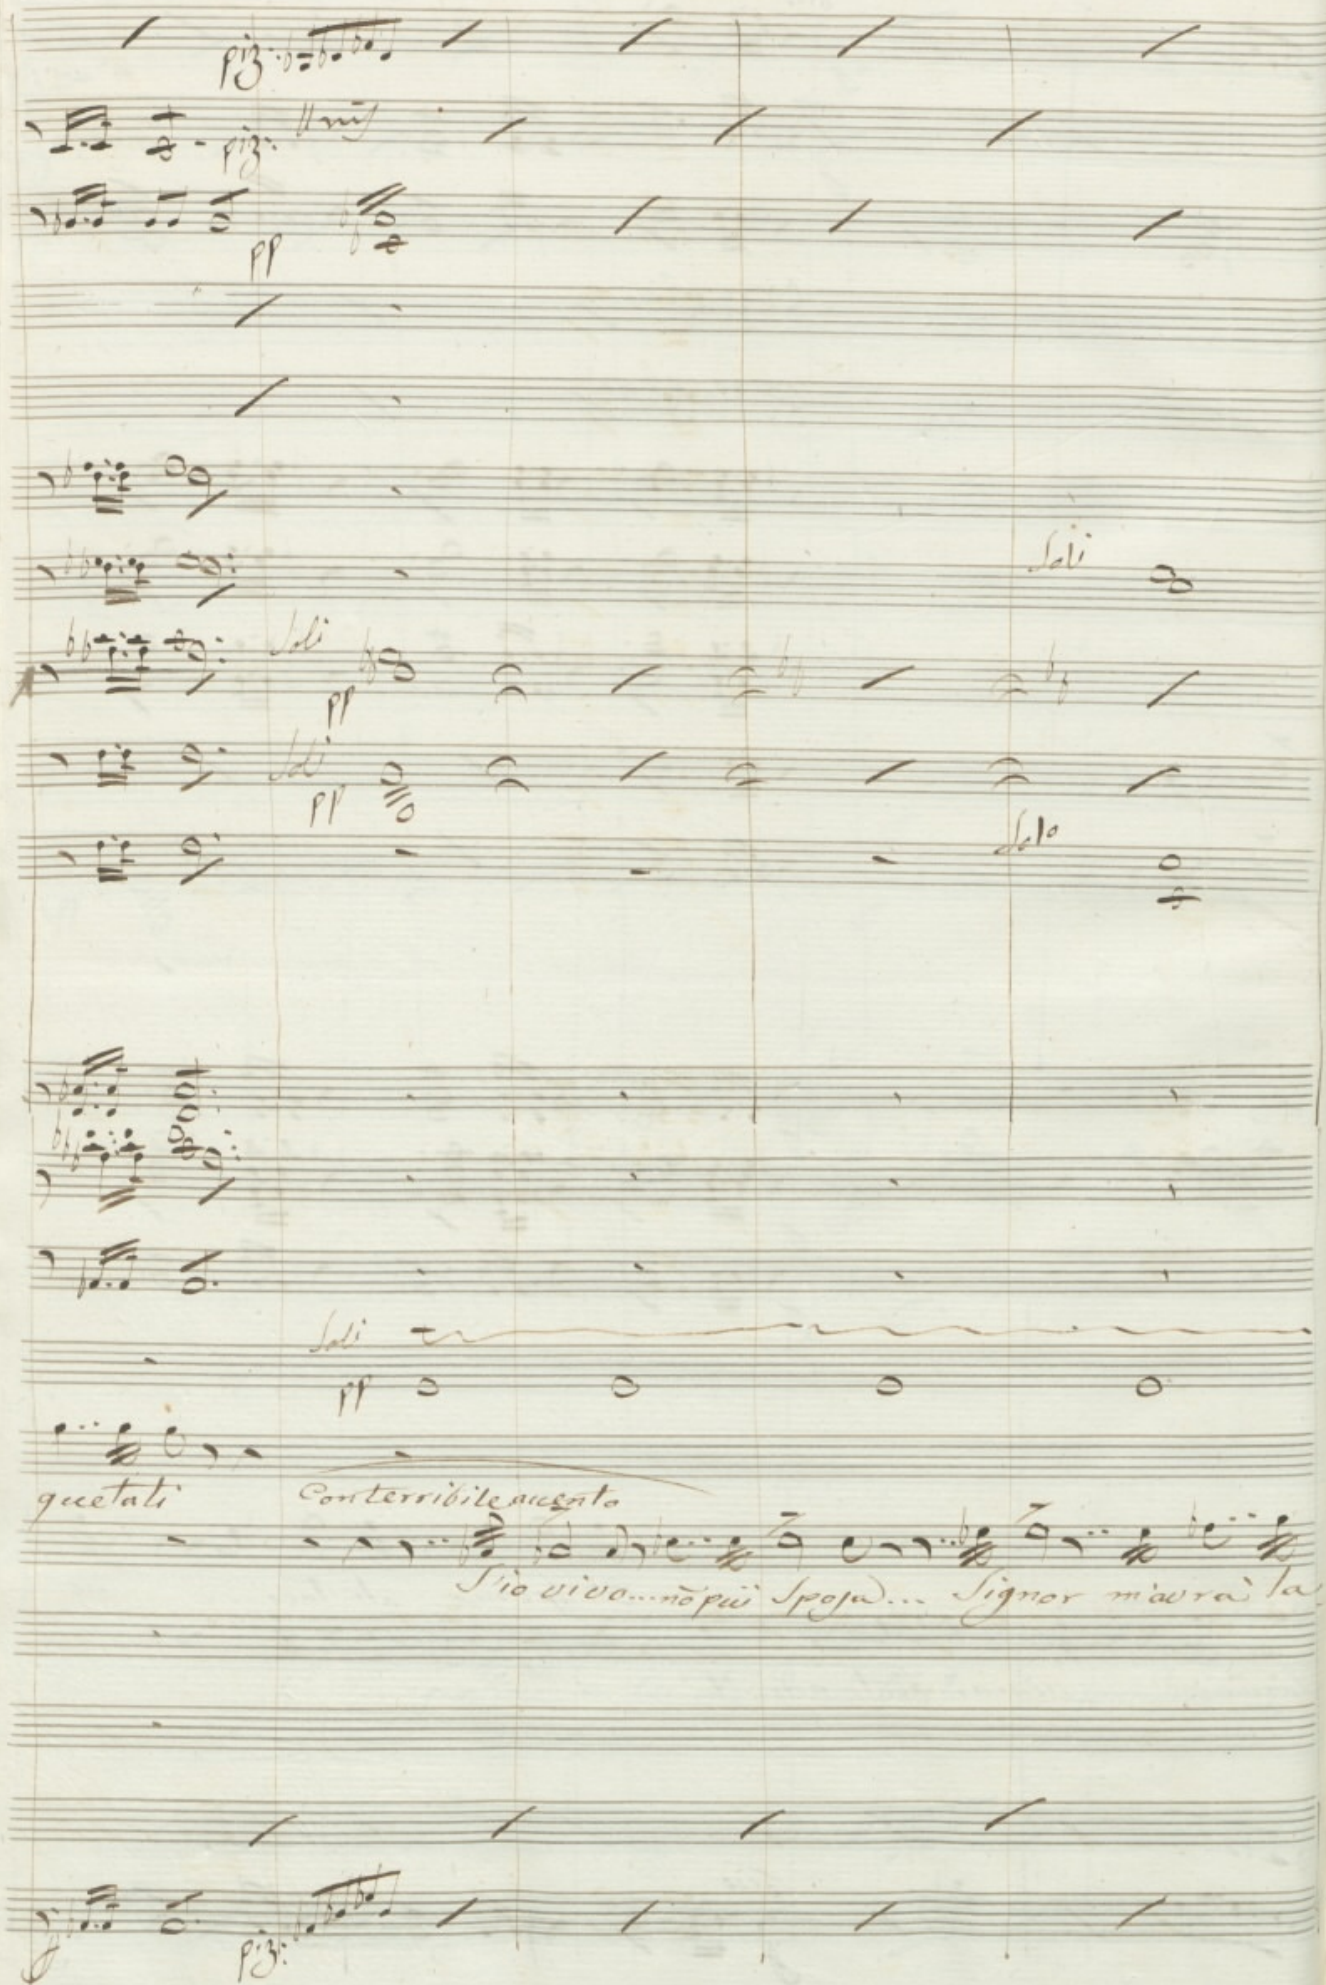 piz:
piz: Unis
pp
Soli
Soli
pp
Soli
pp
Solo
Soli
pp
quetati
Con terribile accento
S'io vivo... nõ più Sposa... Signor m'avrà la
piz: